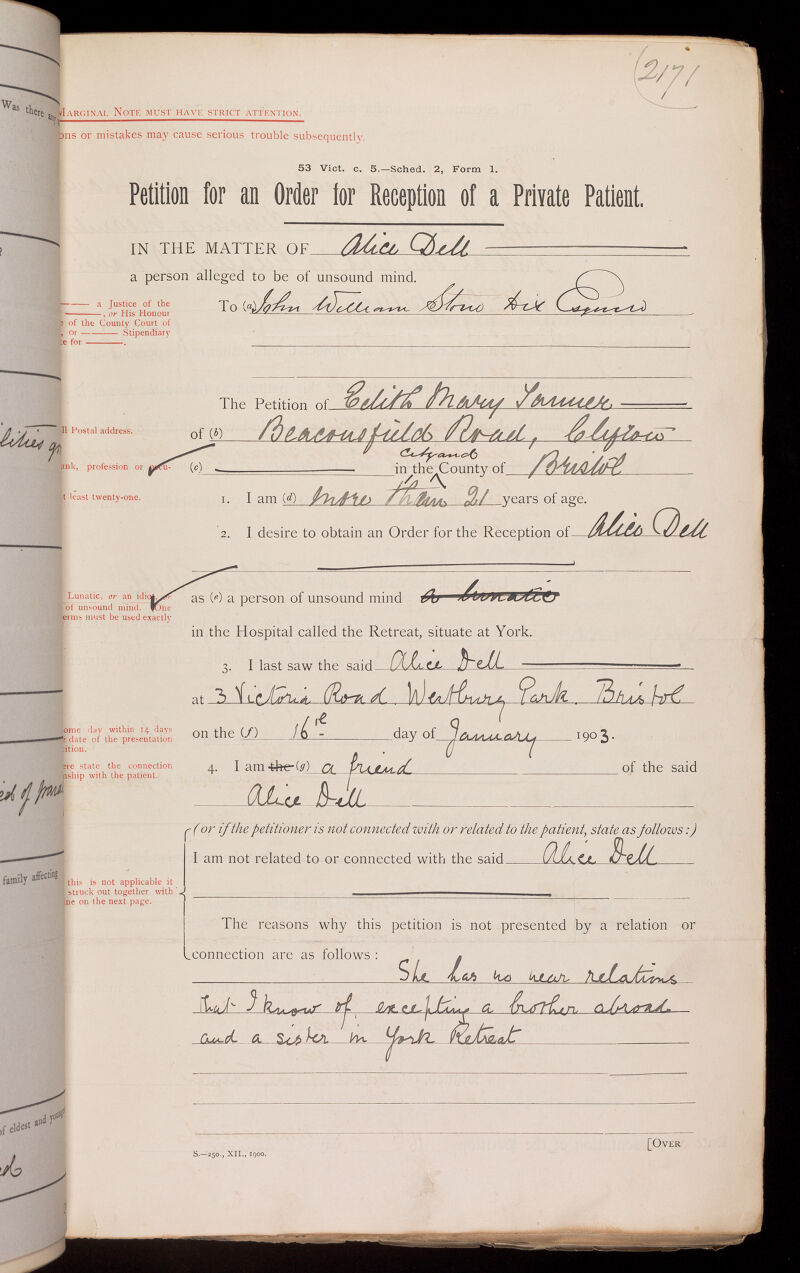 2171
Was there any
Marginal Note must have strict attention.
ons or mistakes may cause serious trouble subsequently.
53 Vict. c. 5.—Sched. 2, Form 1.
Petition for an Order for Reception of a Private Patient.
IN THE MATTER OF Alice Dell
a person alleged to be of unsound mind.
a Justice of the
, or His Honour
of the County Court of
, or Stipendiary
e for .
To (a) John William Stone Dix Esquire
The Petition of Edith Mary Tanner
ll Postal address.
of (b) Beaconsfield Road, Clifton
ank, profession or occu-
City and
(c) in the County of Bristol
t least twenty-one.
1. I am (d) more than 21 years of age.
2. I desire to obtain an Order for the Reception of Alice Dell
Lunatic, or an idiot, or
of unsound mind. One
erms must be used exactly
as (e) a person of unsound mind a lunatic
in the Hospital called the Retreat, situate at York.
3. I last saw the said Alice Dell
at 3 Victoria Road. Westbury Park. Bristol
ome day within 14 days
date of the presentation
ition.
on the (f) 16th day of January 1903.
ere state the connection
nship with the patient.
4. I am the (g) a friend of the said
Alice Dell
(or if the petitioner is not connected with or related to the patient, state as follows:)
I am not related to or connected with the said Alice Dell
family affecting
this is not applicable it
struck out together with
ne on the next page.
The reasons why this petition is not presented by a relation or
connection are as follows:
She has no near relations
that I know of, excepting a brother abroad
and a sister in York Retreat
of eldest and young
[Over
S.—250., XII., 1900.